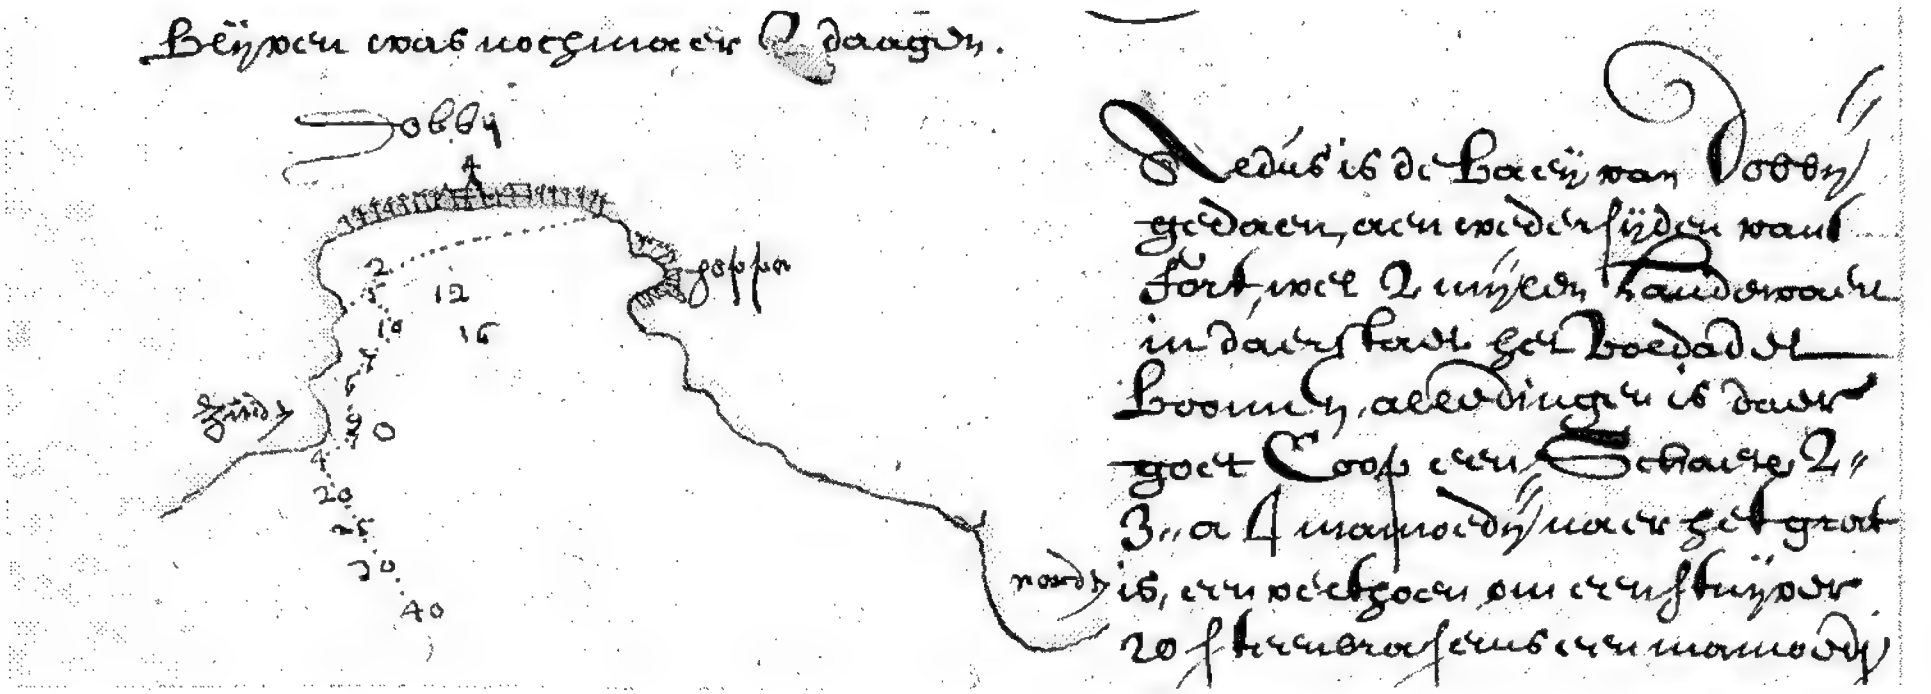 blijven was noch maer 2 daagen.
Dobby
2
5
12
10
16
7
6
zuidt
0
20
25
30
40
noordt
Aldus is de baeij van Dobbij
gedaen, aen wedersijden vant
fort, wel 2 mijlen landewaert
in daer staen het
boomen, alle dingen is daer
goet Coop een Schaep 2„
3„ a 4 mamoedij naer het groot
is, een veethoen om een stuijver
20 steenbrasems een mamoedij